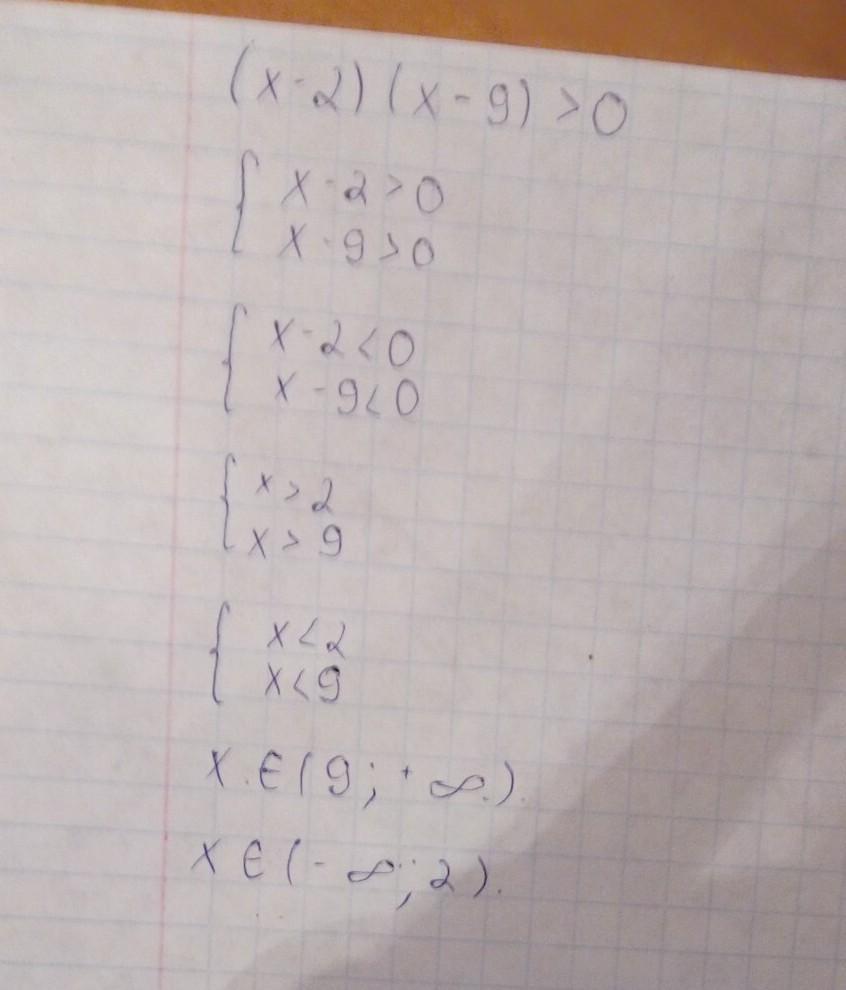 (x-2)(x-9)>0
{ x-2>0
x-9>0
{ x-2<0
x-9<0
{ x>2
x>9
{ x<2
x<9
x ∈ (9; +∞).
x ∈ (-∞; 2).